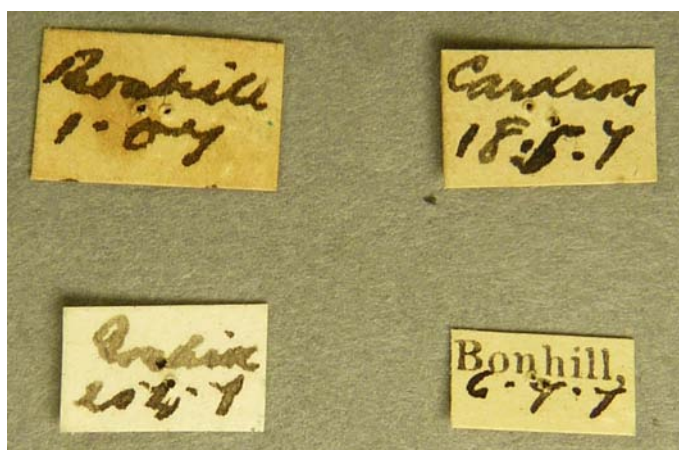 Bonhill
1. 07
Cardross
18.5.7
Bonhill
Bonhill,
6.7.7